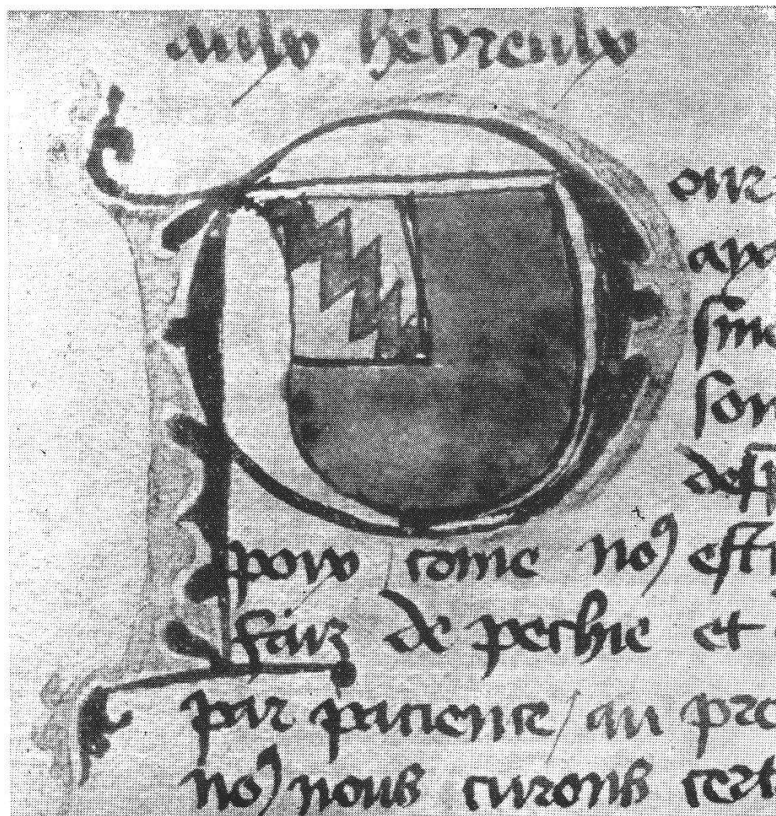 aulx hebreulx
Pour
aya
son
desp
poix / come noꝰ esti
faiz de pechie et
par pacience / au pro
noꝰ nous curons cert